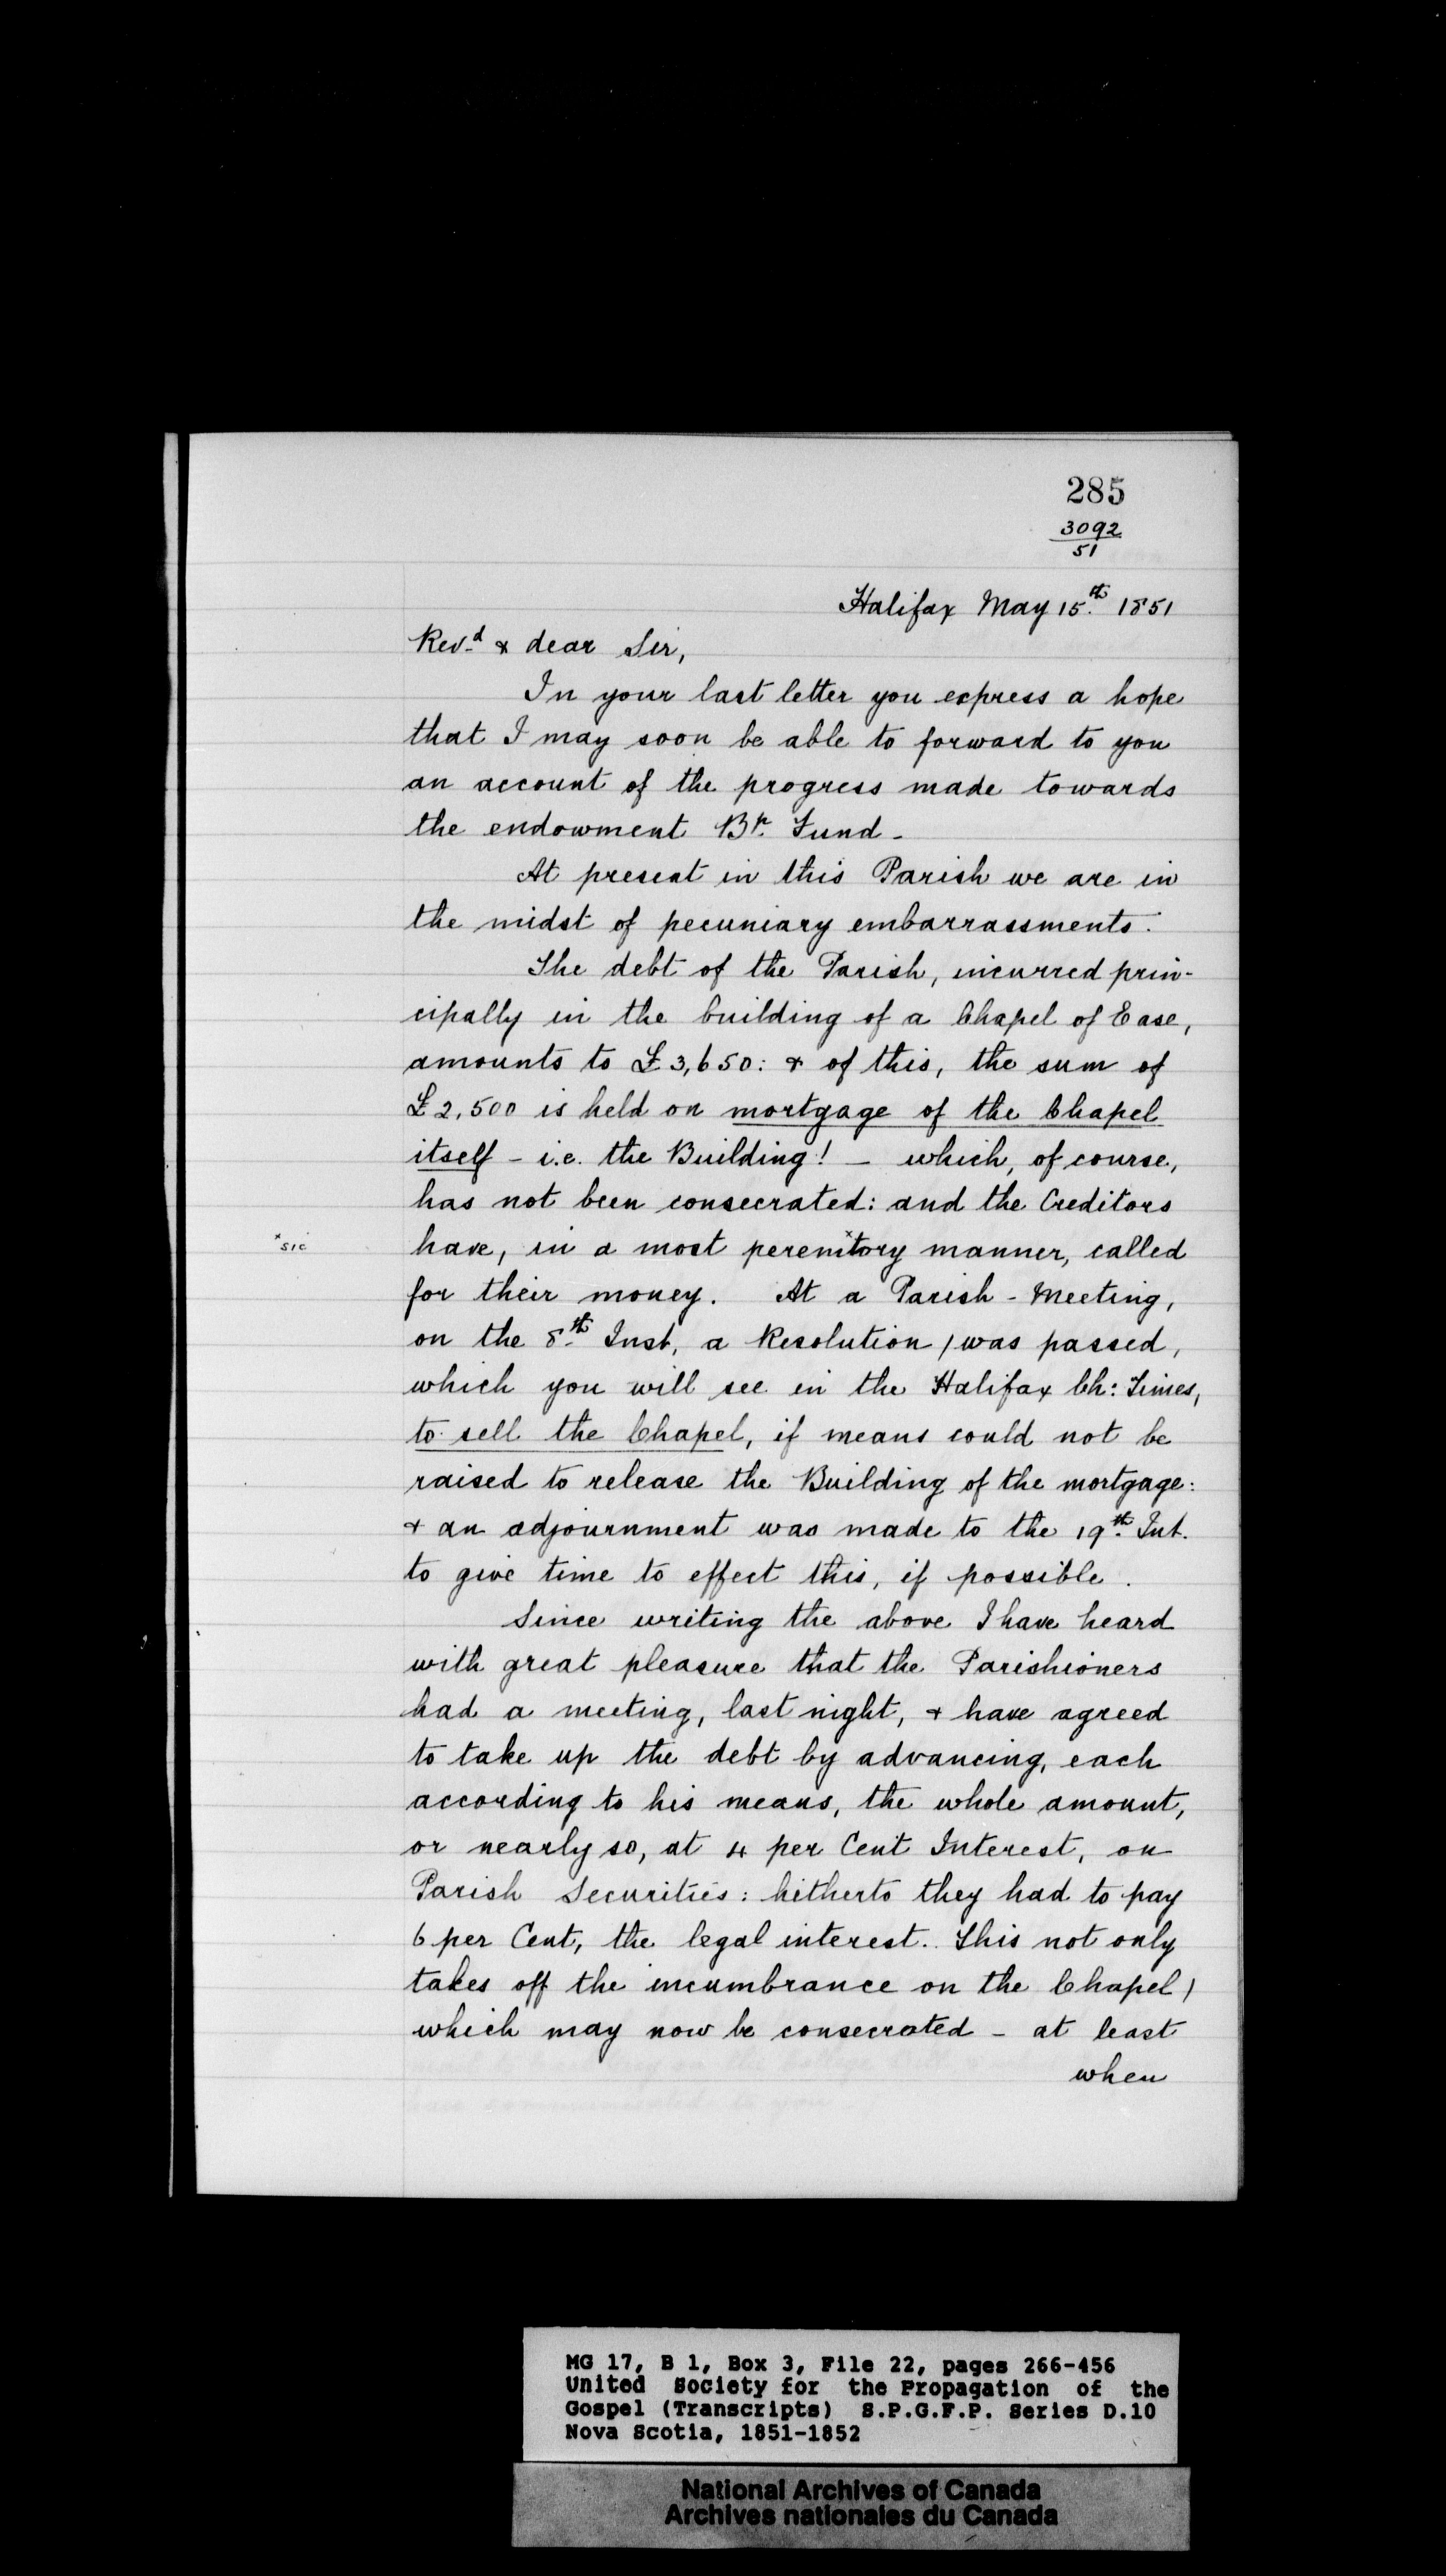 285
3092
51
Halifax May 15th. 1851
Revd. & dear Sir,
In your last letter you express a hope
that I may soon be able to forward to you
an account of the progress made towards
the endowment Bk. Fund -
At present in this Parish we are in
the midst of pecuniary embarrassments.
The debt of the Parish, incurred prin-
cipally in the building of a Chapel of Ease,
amounts to £3,650: & of this, the sum of
£2,500 is held on mortgage of the Chapel
itself - i.e. the Building! - which, of course,
has not been consecrated: and the Creditors
x sic
have, in a most peremitory x manner, called
for their money. At a Parish - Meeting,
on the 8th. Inst, a Resolution / was passed,
which you will see in the Halifax Ch: Times,
to sell the Chapel, if means could not be
raised to release the Building of the mortgage:
& an adjournment was made to the 19th. Int.
to give time to effect this, if possible.
Since writing the above I have heard
with great pleasure that the Parishioners
had a meeting, last night, & have agreed
to take up the debt by advancing, each
according to his means, the whole amount,
or nearly so, at 4 per Cent Interest, on
Parish Securities: hitherto they had to pay
6 per Cent, the legal interest. This not only
takes off the incumbrance on the Chapel /
which may now be consecrated - at least
when
MG 17, B 1, Box 3, File 22, pages 266-456
United Society for the Propagation of the
Gospel (Transcripts) S.P.G.F.P. Series D.10
Nova Scotia, 1851-1852
National Archives of Canada
Archives nationales du Canada